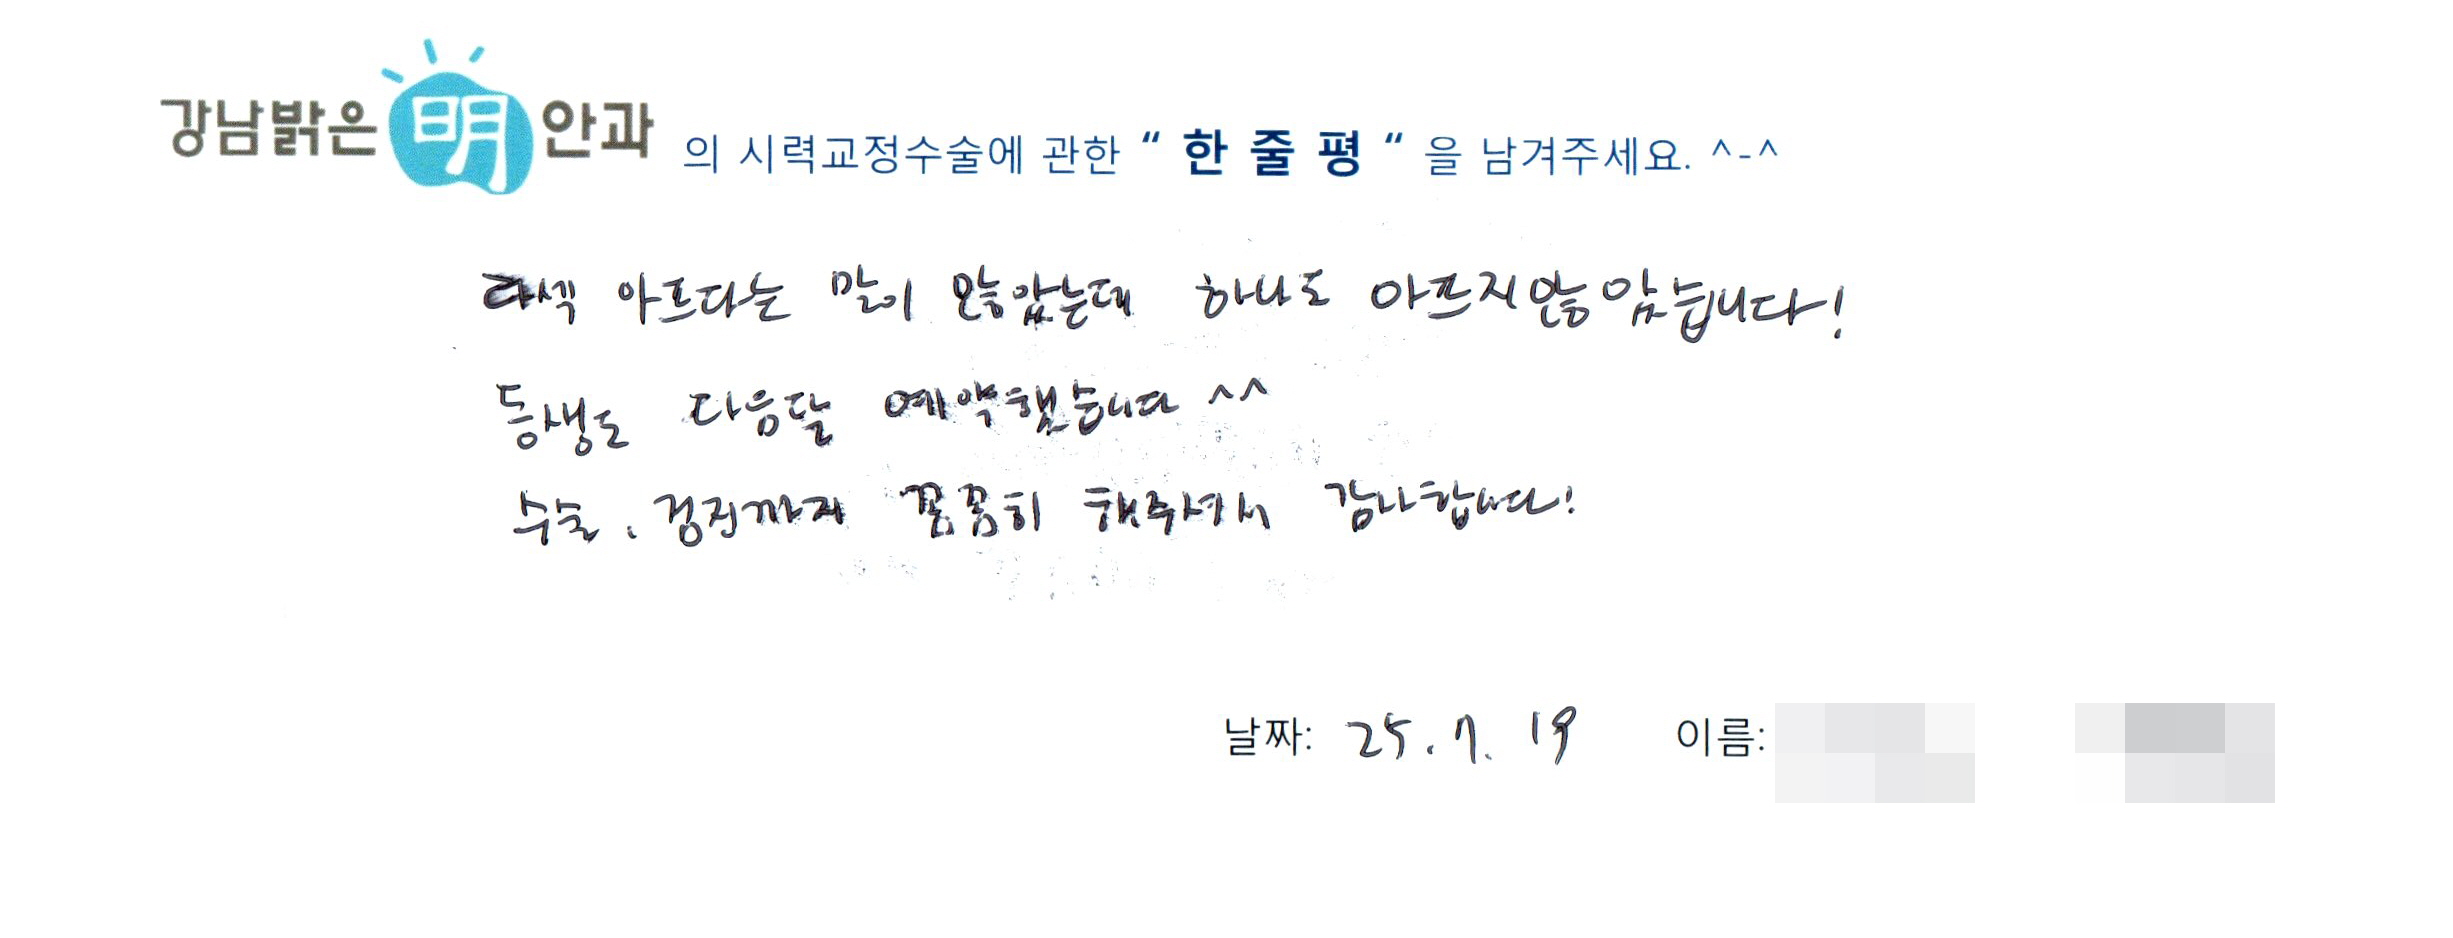 강남밝은明안과 의 시력교정수술에 관한 “ 한 줄 평 “ 을 남겨주세요. ^-^
라섹 아프다는 말이 많았는데 하나도 아프지않았습니다!
동생도 다음달 예약했습니다 ^^
수술, 검진까지 꼼꼼히 해주셔서 감사합니다!
날짜: 25. 7. 19 이름: